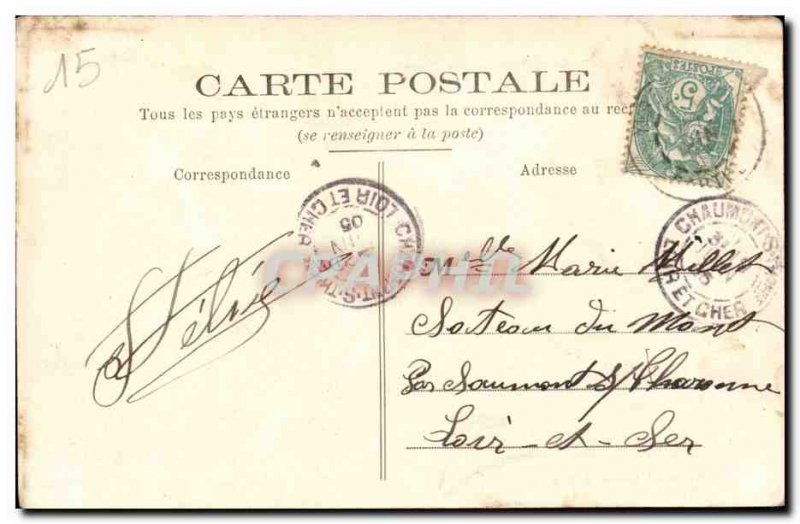 15
CARTE POSTALE
Tous les pays étrangers n'acceptent pas la correspondance au rec
(se renseigner à la poste)
Correspondance
Adresse
5c
POSTES
LOIR ET CHER
05
CHAUMONT-S-THARONNE
CHAUMONT S
LOIR ET CHER
CPAPHIL
Mlle Marie Millet
Soteau du Monet
Par Saumont s/ Tharonne
Loir-et-Ser